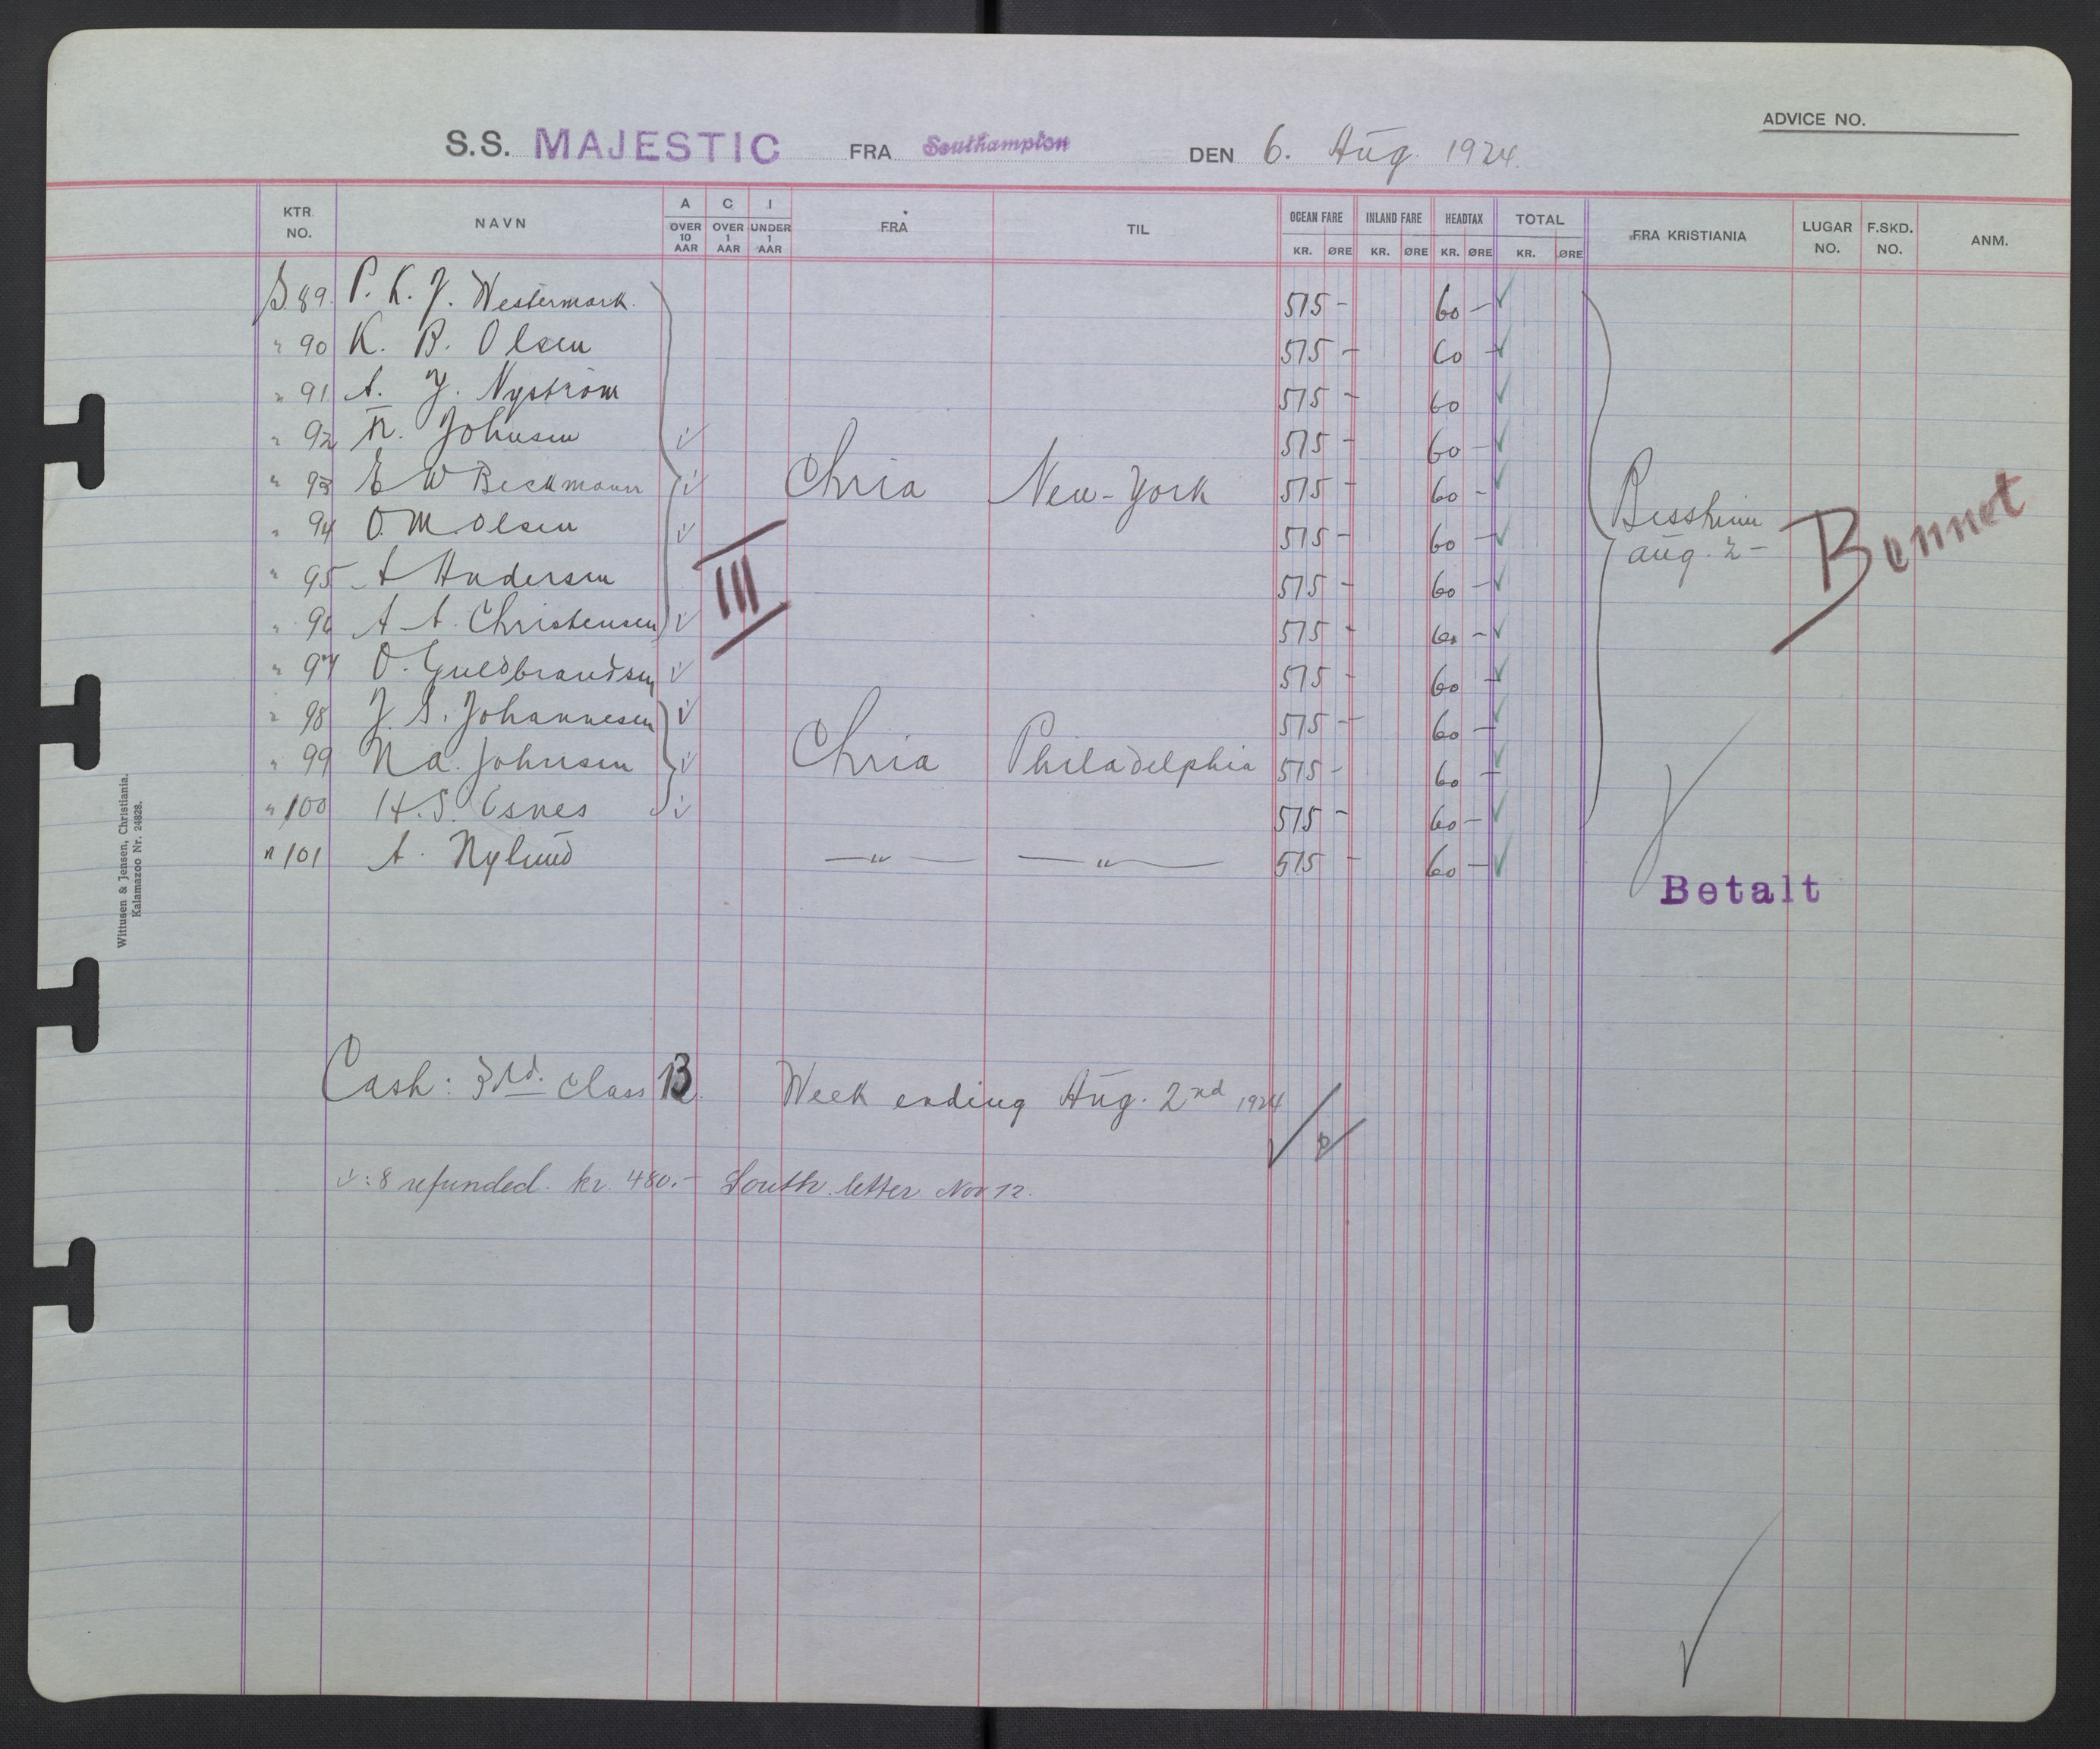 ADVICE NO.
S.S. MAJESTIC FRA Southampton DEN 6. Aug. 1924.
KTR. NO. NAVN A OVER 10 AAR C OVER 1 AAR I UNDER 1 AAR FRA TIL OCEAN FARE KR. ØRE INLAND FARE KR. ØRE HEADTAX KR. ØRE TOTAL KR. ØRE FRA KRISTIANIA LUGAR NO. F.SKD. NO. ANM.
S 89. P. K. J. Westermark. 575 - 60 - ✓
" 90 K. B. Olsen 575 - 60 - ✓
" 91 A. J. Nyström 575 - 60 ✓
" 92 N. Johnsen ✓ 575 - 60 - ✓
" 93 E W Beckmann ✓ Chria New-York 575 - 60 - ✓
" 94 O. M. Olsen ✓ 575 - 60 - ✓
Aug. 2 -
Bennet
" 95 A Andersen III 575 - 60 - ✓
" 96 A A. Christensen ✓ 575 - 60 - ✓
" 97 O. Guldbrandsen ✓ 575 - 60 - ✓
" 98 J S. Johannesen ✓ 575 - 60 - ✓
" 99 N a. Johnsen ✓ Chria Philadelphia 575 - 60 - ✓
" 100 H. S. Osnes ✓ 575 - 60 - ✓
" 101 A. Nylund —"— —"— 575 - 60 - ✓
Betalt
Wittusen & Jensen, Christiania.
Kalamazoo Nr. 24828.
Cash: 3rd. class 13 Week ending Aug. 2nd 1924
✓: 8 refunded. kr. 480.- South. letter Nov 12.